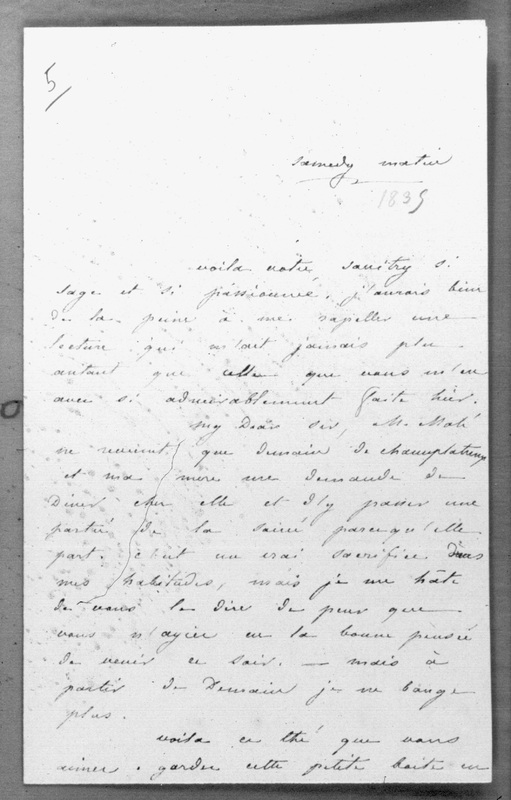 5
samedy matin
1835
voila votre sauitry si
sage et si passionnée, j'aurais bien
de la peine à me rapeller une
lecture qui m'art jamais plu
autant que celle que vous m'en
avez si admirablement faite hier.
My Dear sir, M. Molé
ne revient que demain de champlatreux
et ma mere me demande de
Diner chez elle et d'y passer une
partie de la soiré parcequ'elle
part. c'est un vrai sacrifice dans
mes habitudes, mais je me hâte
de vous le dire de peur que
vous n'ayier eu la bonne pensée
de venir ce soir. — mais à
partir de Demain je ne bouge
plus.
voila ce thé que vous
aimez. gardez cette petite boite en